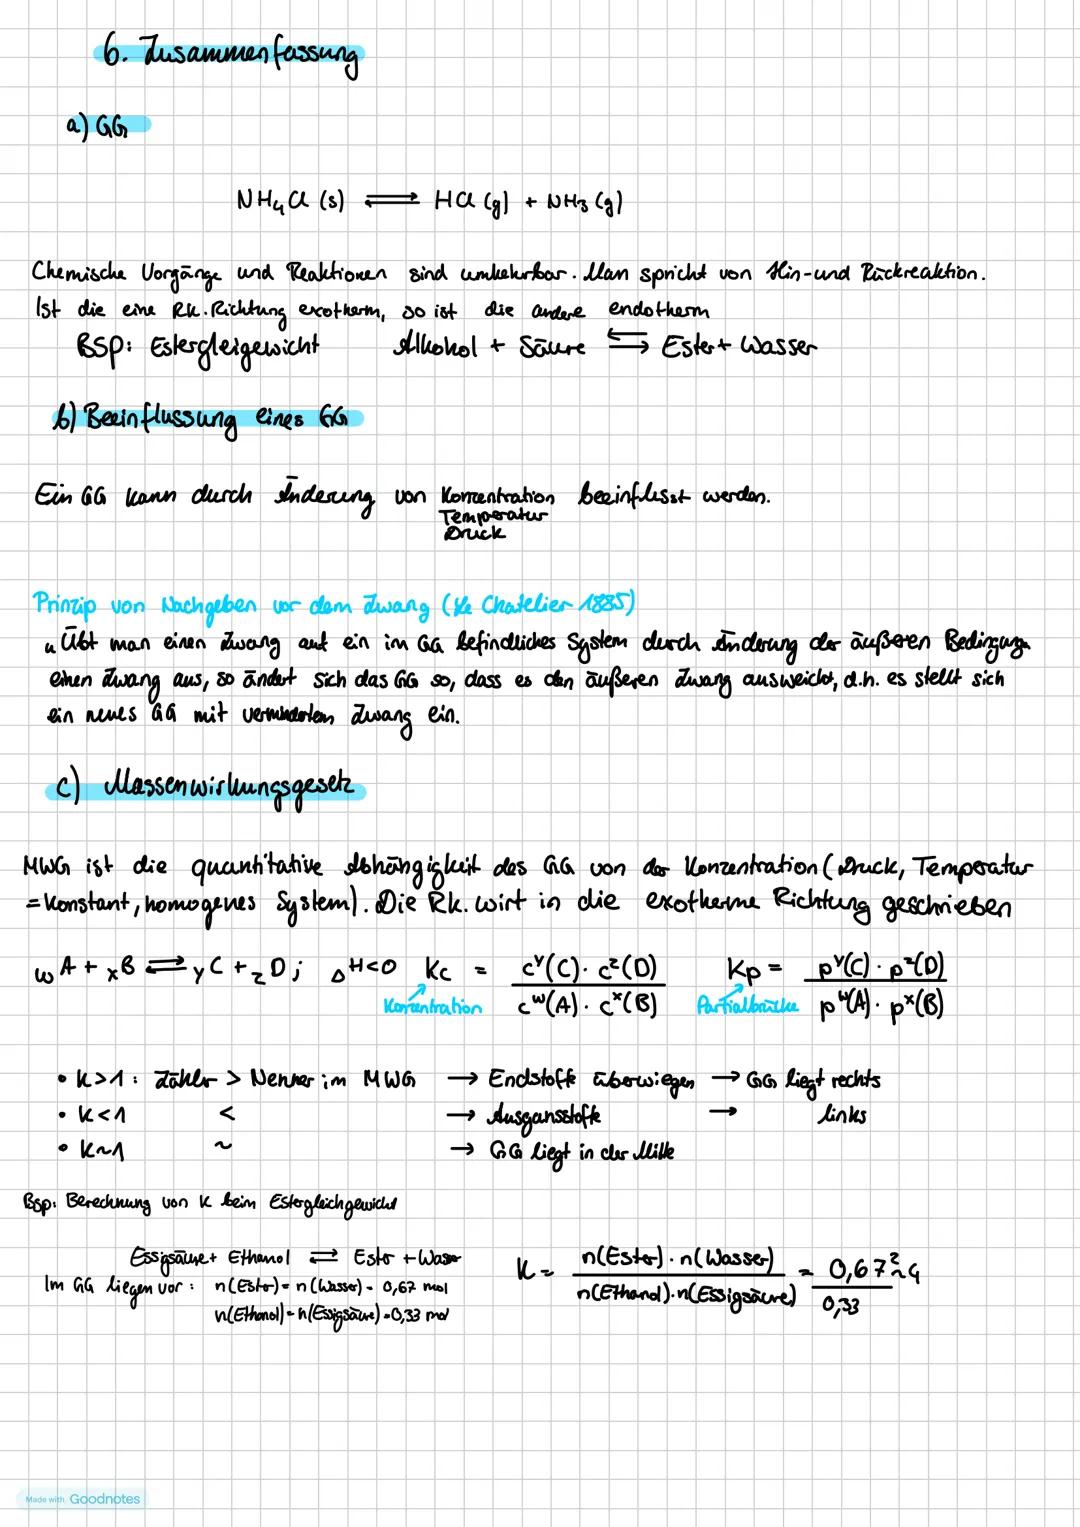 6. Zusammenfassung
a) GG
NH₄Cl (s) ⇌ HCl (g) + NH₃ (g)
Chemische Vorgänge und Reaktionen sind umkehrbar. Man spricht von Hin- und Rückreaktion.
Ist die eine Rk. Richtung exotherm, so ist die andere endotherm
BSP: Estergleigewicht Alkohol + Säure ⇆ Ester + Wasser
b) Beeinflussung eines GG
Ein GG kann durch Änderung von Konzentration beeinflusst werden.
Temperatur
Druck
Prinzip von Nachgeben vor dem Zwang (Le Chatelier 1885)
„Übt man einen Zwang auf ein im GG befindliches System durch Änderung der äußeren Bedingung
einen Zwang aus, so ändert sich das GG so, dass es den äußeren Zwang ausweicht, d.h. es stellt sich
ein neues GG mit vermindertem Zwang ein.
c) Massenwirkungsgesetz
MWG ist die quantitative Abhängigkeit des GG von der Konzentration (Druck, Temperatur
= konstant, homogenes System). Die Rk. wirt in die exotherme Richtung geschrieben
wA + xB ⇌ yC + zD ; ΔH<0 Kc = c^y(C) · c^z(D) / c^w(A) · c^x(B) Kp = p^y(C) · p^z(D) / p^w(A) · p^x(B)
Konzentration Partialdrücke
• K>1 : Zähler > Nenner im MWG → Endstoffe überwiegen → GG liegt rechts
• K<1 < → Ausgansstoffe → links
• K~1 ~ → GG liegt in der Mitte
Bsp: Berechnung von K beim Estergleichgewicht
Essigsäure + Ethanol ⇌ Ester + Wasser
Im GG liegen vor : n(Ester) = n(Wasser) = 0,67 mol
n(Ethanol) = n(Essigsäure) = 0,33 mol
K = n(Ester) · n(Wasser) / n(Ethanol) · n(Essigsäure) = 0,67² / 0,33 ~ 4
Made with Goodnotes